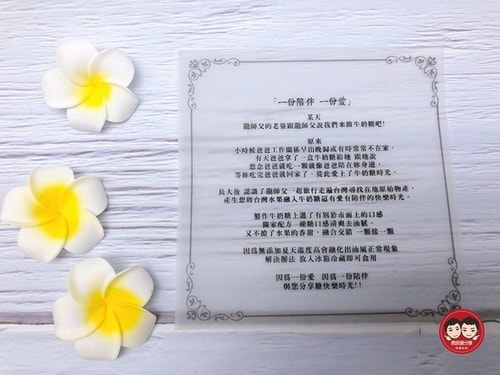 「一份陪伴 一份愛」
某天
龍師父的老婆跟龍師父說我們來做牛奶糖吧!
原來
小時候爸爸工作關係早出晚歸或有時常常不在家,
有天爸爸拿了一盒牛奶糖給她 跟她說
想念爸爸就吃一顆就像爸爸陪在妳身邊,
等妳吃完爸爸就回家了。從此愛上了牛奶糖時光。
長大後 認識了龍師父一起旅行走遍台灣尋找在地原始物產,
產生想將台灣水果融入牛奶糖這有愛有陪伴的快樂時光。
製作牛奶糖上選了有別於市面上的口感
獨家配方一硬糖口感清爽去油膩、
又不搶了水果的香甜, 融合交錯一顆接一顆
因為無添加夏天溫度高會融化出油屬正常現象
解決辦法 放入冰箱冷藏即可食用
因為一份愛 因為一份陪伴
與您分享糖快樂時光!!